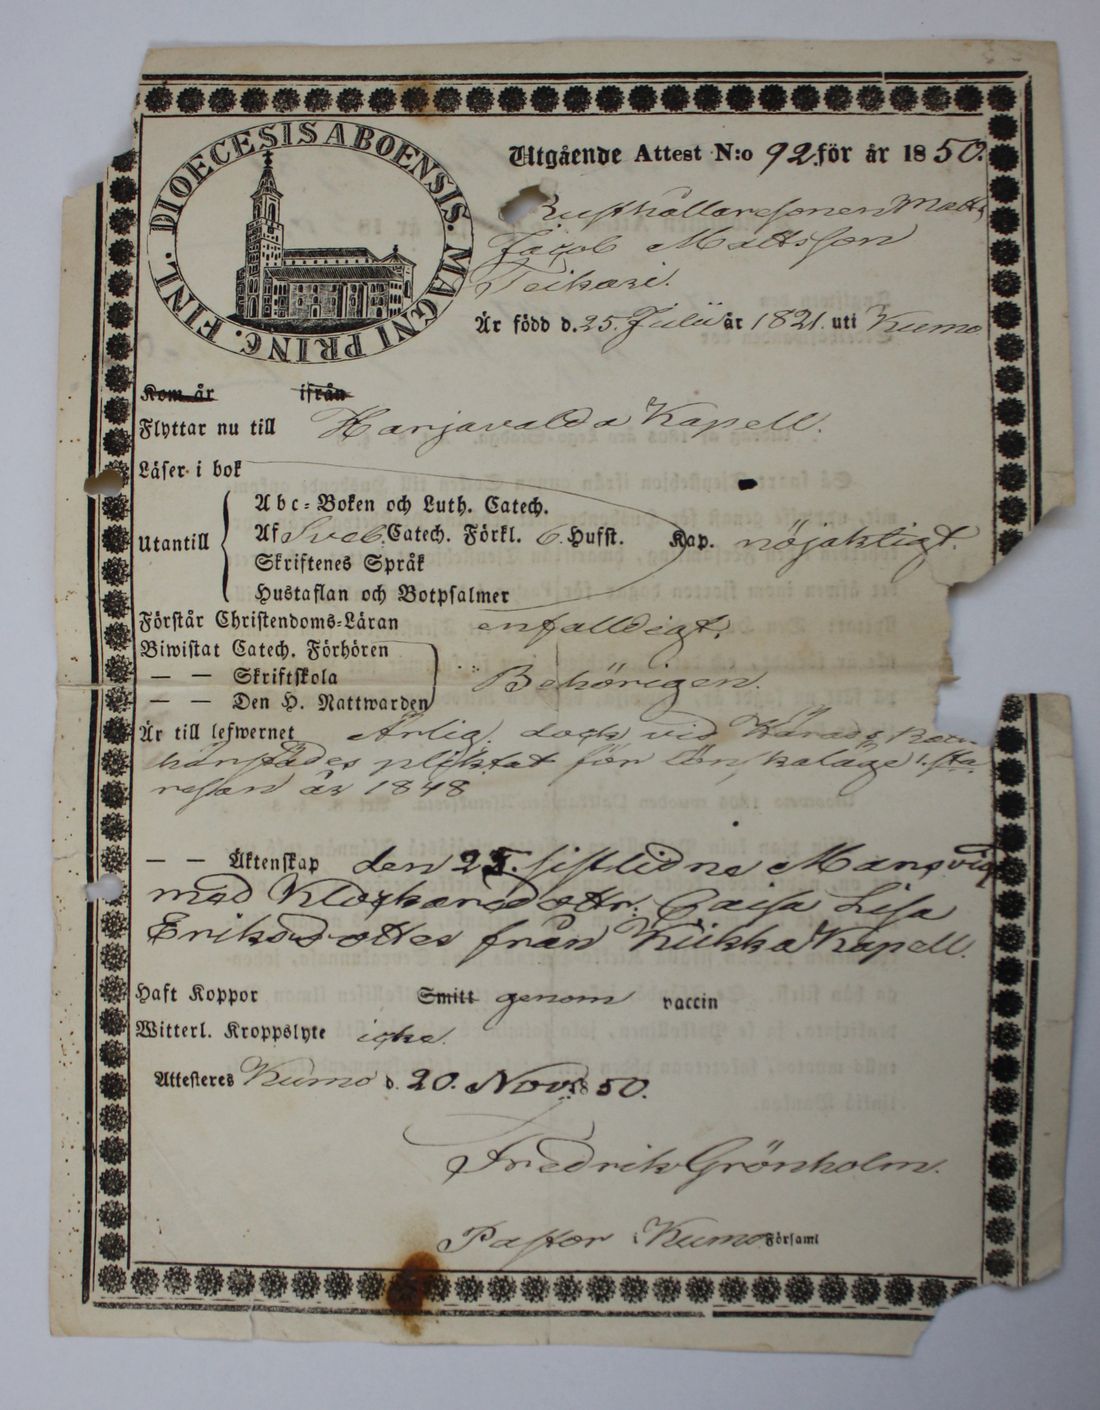 DIOECESIS ABOENSIS. MAGNI PRINC. FINL.
Utgående Attest N:o 92. för år 1850.
Rusthållaresonen Matts
Jacob Mattsson
Teikari.
Är född d. 25. Julii år 1821. uti Kumo
Kom år ifrån
Flyttar nu till Harjavalda Kapell.
Läser i bok
Abc-Boken och Luth. Catech.
Utantill Af Sveb. Catech. Förkl. 6. Hufst. Kap. nöjaktigt.
Skriftenes Språk
Hustaflan och Botpsalmer
Förstår Christendoms-Läran enfalldigt.
Biwistat Catech. Förhören
— — Skriftskola Behörigen.
— — Den H. Nattwarden
Är till lefwernet Ärlig. dock vid Härads
härstädes pliktat för lönskaläge 1.sta
resan år 1848
— — Äktenskap den 25. sistlidne Mars vigd
med Klockaredottr. Caisa Lisa
Eriksdotter från Kiikka Kapell.
Haft Koppor Smitt genom vaccin
Witterl. Kroppslyte icke.
Attesteres Kumo d. 20. Nov. 1850.
Fredrik Grönholm.
Pastor i Kumo Församl